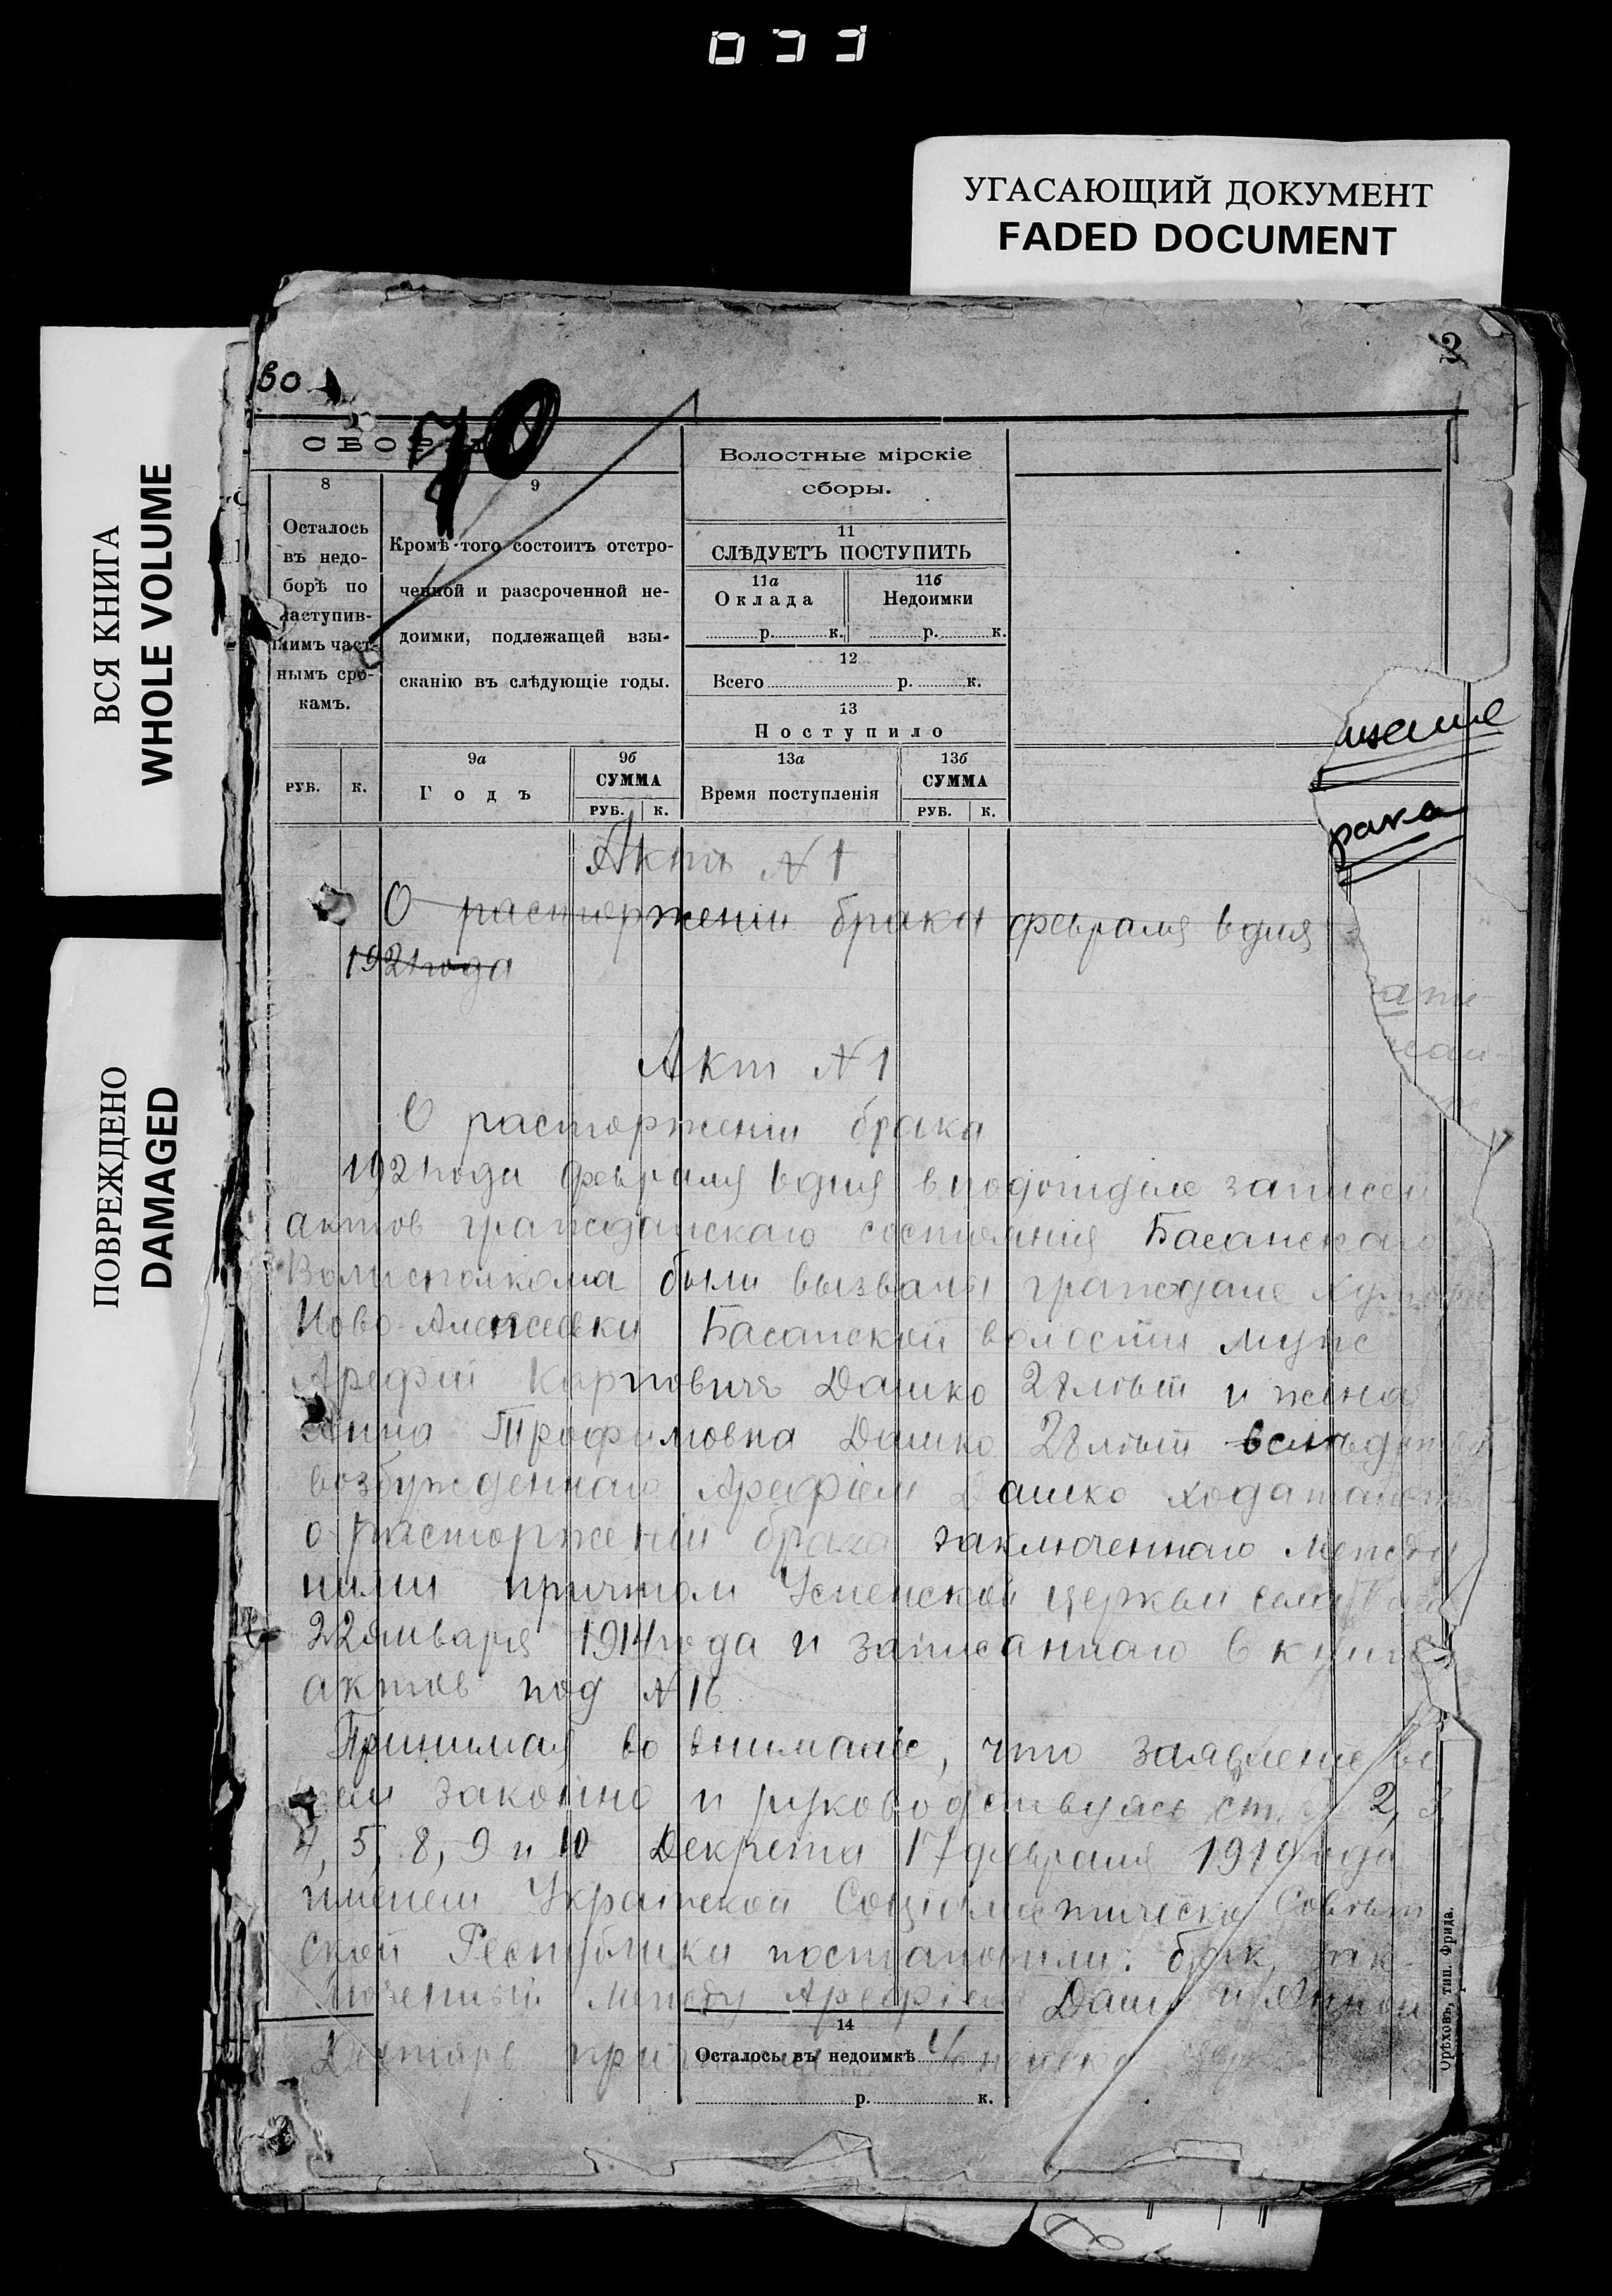 033
УГАСАЮЩИЙ ДОКУМЕНТ
FADED DOCUMENT
ВСЯ КНИГА
WHOLE VOLUME
ПОВРЕЖДЕНО
DAMAGED
70
Волостные мірскіе
сборы.
8
Осталось
въ недо-
борѣ по
наступив-
шимъ част-
нымъ сро-
камъ.
РУБ. К.
9
Кромѣ того состоитъ отстро-
ченной и разсроченной не-
доимки, подлежащей взы-
сканію въ слѣдующіе годы.
9а
Годъ
9б
СУММА
РУБ. К.
11
СЛѢДУЕТЪ ПОСТУПИТЬ
11а
Оклада
р. к.
11б
Недоимки
р. к.
12
Всего р. к.
13
Поступило
13а
Время поступленія
13б
СУММА
РУБ. К.
Актъ N 1
О расторженіи брака февраля 6 дня
1921 года
Акт N 1
О расторженіи брака
1921 года февраля 6 дня в подотделе записей
актов гражданскаго состояния Басанскаго
Волисполкома были вызваны граждане
Ново-Алексеевки Басанской волости муж
Арефій Карпович Дашко 28 лѣт и жена
Анна Трофимовна Дашко 28 лѣт вслѣдствіе
возбужденнаго Арефіем Дашко ходатайства
о расторженіи брака заключеннаго между
ними причтом Успенской церкви села
22 января 1914 года и записаннаго в книге
актов под N 16
Принимая во внимание, что заявление
законно и руководствуясь ст. 2, 3,
4, 5, 8, 9 и 10 Декрета 17 февраля 1919 года
именем Украинской Социалистической Совѣт
ской Республики постановили: брак, зак
люченный между Арефіем Дашко и Анной
14
Осталось въ недоимкѣ
р. к.
Орѣховъ, тип. Фрида.